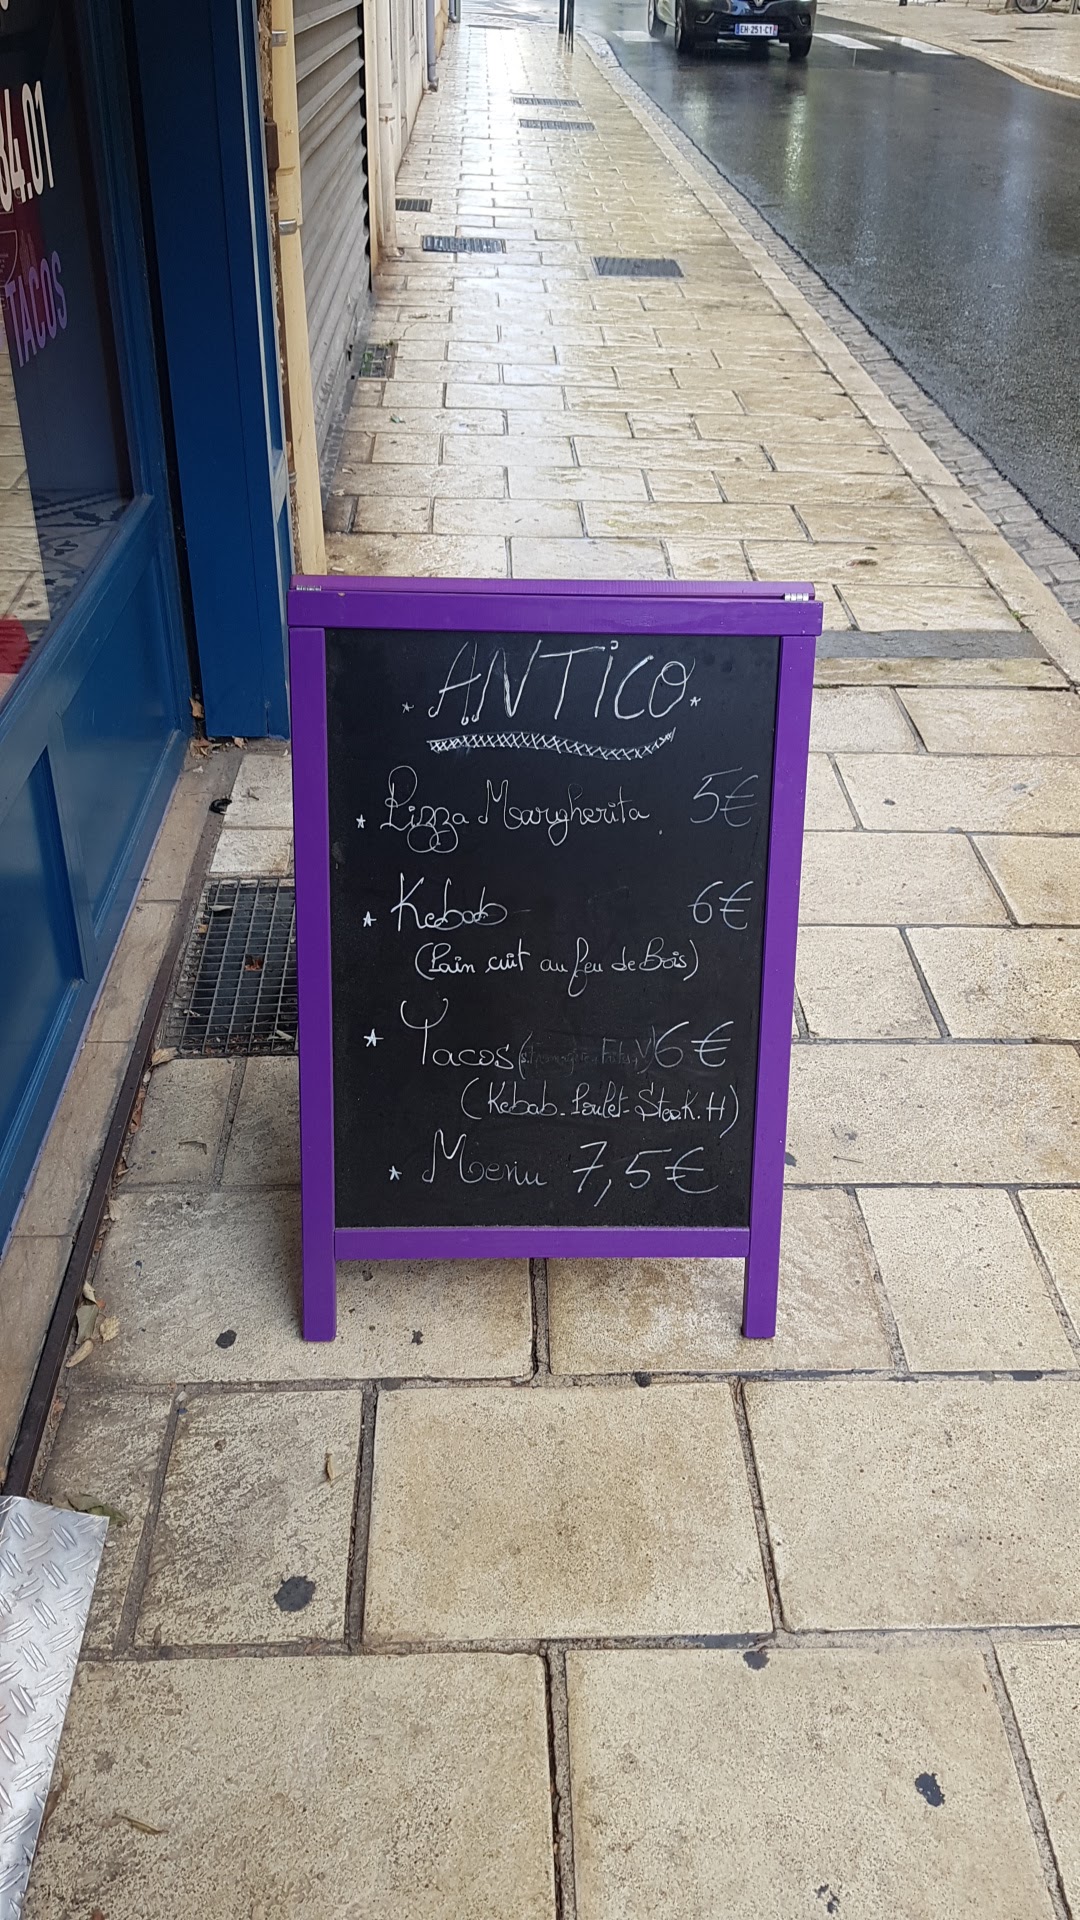 84.01
TACOS
EH-251-C
* ANTiCO *
* Pizza Margherita 5€
* Kebab 6€
(Pain cuit au feu de Bois)
* Tacos ( ) 6€
(Kebab - Poulet - Steak. H)
* Menu 7,5€